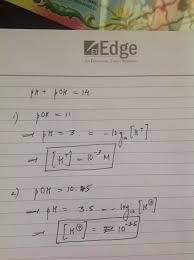 Edge
pH + pOH = 14
1) pOH = 11
→ pH = 3 = -log₁₀[H⁺]
→ [H⁺] = 10⁻³ M
2) pOH = 10.5
→ pH = 3.5 = -log₁₀[H⊕]
→ [H⊕] = 10⁻³·⁵